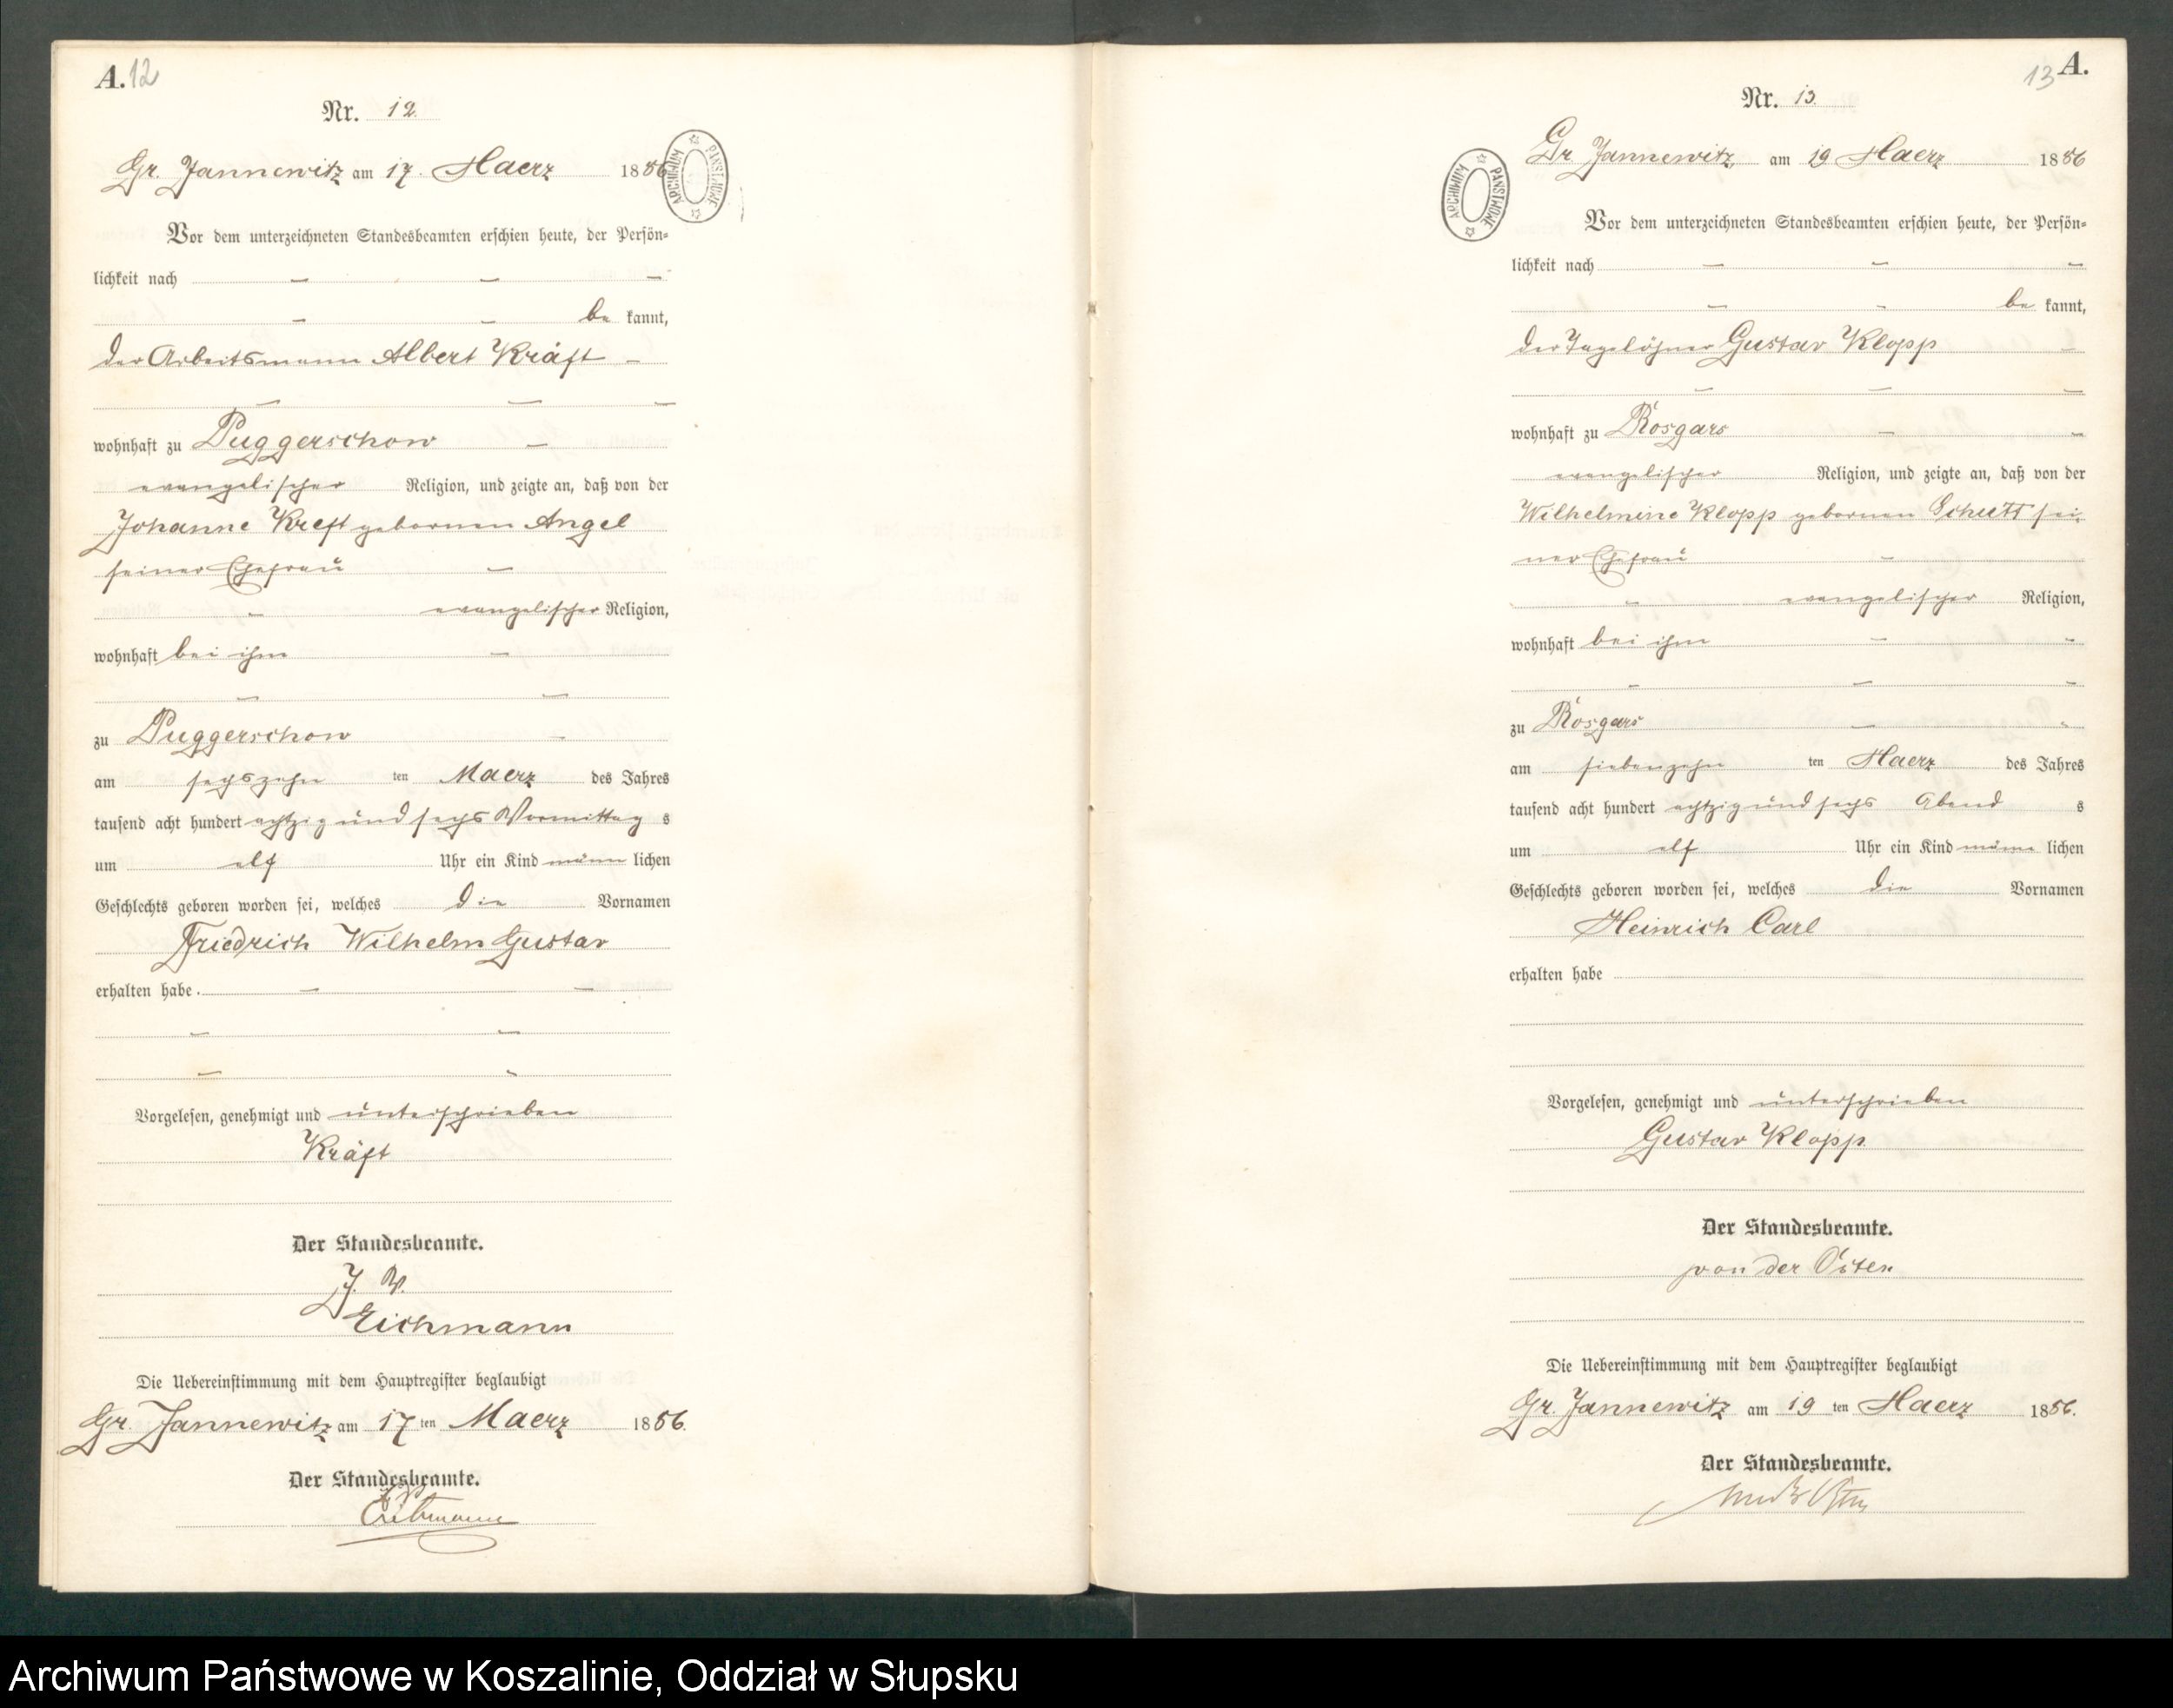 A. 12
Nr. 12.
Gr. Jannewitz am 17. Maerz 1886
Vor dem unterzeichneten Standesbeamten erschien heute, der Persön-
lichkeit nach — — —
— — be kannt,
der Arbeitsmann Albert Kräft —
— — —
wohnhaft zu Puggerschow —
evangelischer Religion, und zeigte an, daß von der
Johanne Kreft gebornen Angel
seiner Ehefrau —
— evangelischer Religion,
wohnhaft bei ihm —
— —
zu Puggerschow —
am sechszehn ten Maerz des Jahres
tausend acht hundert achtzig und sechs Vormittag s
um elf Uhr ein Kind männ lichen
Geschlechts geboren worden sei, welches die Vornamen
Friedrich Wilhelm Gustav
erhalten habe. — —
— —
— —
Vorgelesen, genehmigt und unterschrieben
Kräft
Der Standesbeamte.
J. V.
Eichmann
Die Uebereinstimmung mit dem Hauptregister beglaubigt
Gr. Jannewitz am 17 ten Maerz 1886.
Der Standesbeamte.
Eichmann
ARCHIWUM PAŃSTWOWE
13 A.
Nr. 13.
Gr. Jannewitz, am 19 Maerz 1886
Vor dem unterzeichneten Standesbeamten erschien heute, der Persön-
lichkeit nach — — —
— — be kannt,
der Tagelöhner Gustav Klopp —
— — —
wohnhaft zu Rosgars — —
evangelischer Religion, und zeigte an, daß von der
Wilhelmine Klopp gebornen Schutt sei-
ner Ehefrau —
— evangelischer Religion,
wohnhaft bei ihm — —
— — —
zu Rosgars — —
am siebenzehn ten Maerz des Jahres
tausend acht hundert achtzig und sechs Abend s
um elf Uhr ein Kind männ lichen
Geschlechts geboren worden sei, welches die Vornamen
Heinrich Carl
erhalten habe
Vorgelesen, genehmigt und unterschrieben
Gustav Klopp.
Der Standesbeamte.
von der Osten
Die Uebereinstimmung mit dem Hauptregister beglaubigt
Gr. Jannewitz am 19 ten Maerz 1886.
Der Standesbeamte.
von der Osten
ARCHIWUM PAŃSTWOWE
Archiwum Państwowe w Koszalinie, Oddział w Słupsku